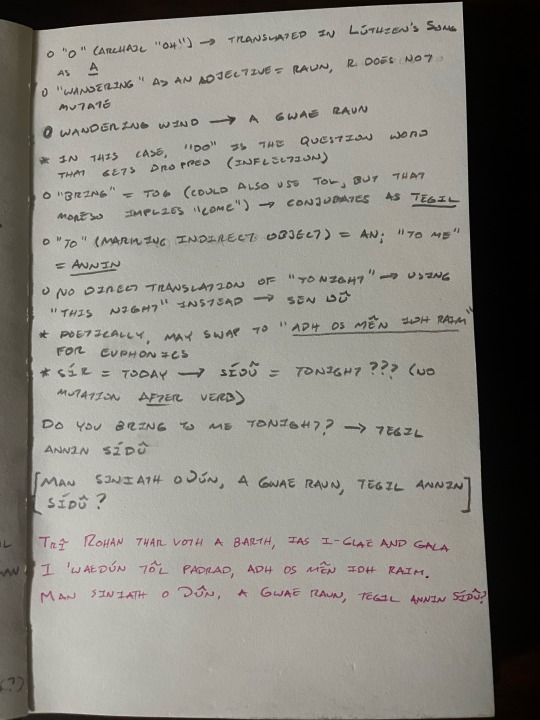 o "O" (ARCHAIC "OH") → TRANSLATED IN LÚTHIEN'S SONG
AS A
o "WANDERING" AS AN ADJECTIVE = RAUN, R DOES NOT
MUTATE
O WANDERING WIND → A GWAE RAUN
* IN THIS CASE, "DO" IS THE QUESTION WORD
THAT GETS DROPPED (INFLECTION)
o "BRING" = TOG (COULD ALSO USE TOL, BUT THAT
MORESO IMPLIES "COME") → CONJUGATES AS TEGIL
o "TO" (MARKING INDIRECT OBJECT) = AN; "TO ME"
= ANNIN
o NO DIRECT TRANSLATION OF "TONIGHT" → USING
"THIS NIGHT" INSTEAD → SEN DÛ
* POETICALLY, MAY SWAP TO "ADH OS MĒN IDH RAIM"
FOR EUPHONICS
* SÍR = TODAY → SÍDÛ = TONIGHT ??? (NO
MUTATION AFTER VERB)
DO YOU BRING TO ME TONIGHT? → TEGIL
ANNIN SÍDÛ
[MAN SINIATH O DÚN, A GWAE RAUN, TEGIL ANNIN
SÍDÛ?]
TRÎ ROHAN THAR VOTH A BARTH, IAS I-GLAE AND GALA
I 'WAEDÚN TÔL PADRAD, ADH OS MĒN IDH RAIM.
MAN SINIATH O DÛN, A GWAE RAUN, TEGIL ANNIN SÍDÛ?